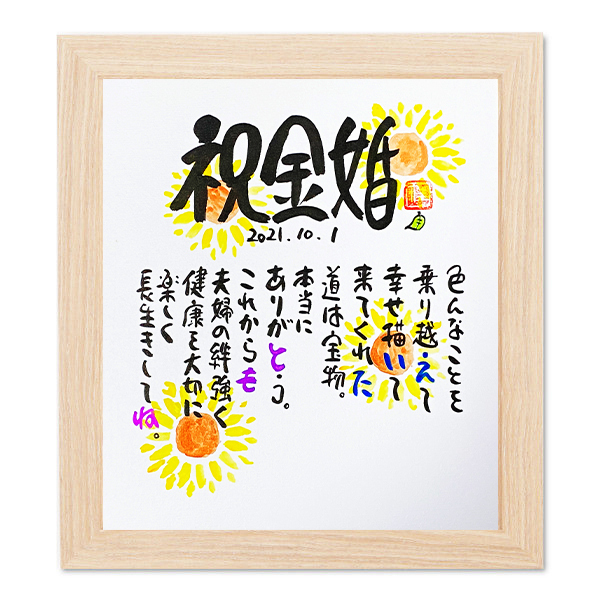 祝金婚
2021.10.1
色んなことを
乗り越えて
幸せ描いて
来てくれた
道は宝物。
本当に
ありがとう。
これからも
夫婦の絆強く
健康を大切に
楽しく
長生きしてね。